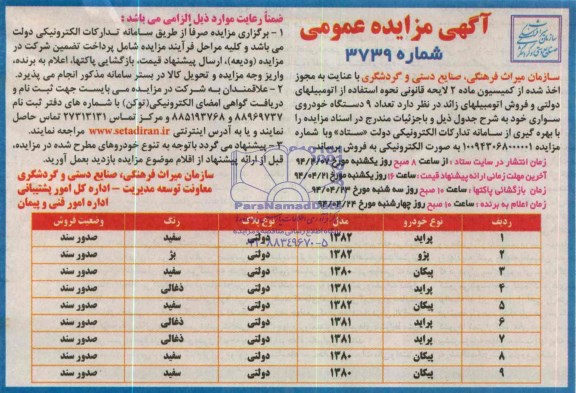 آگهی مزایده عمومی
شماره ۳۷۳۹
سازمان میراث فرهنگی، صنایع دستی و گردشگری با عنایت به مجوز
اخذ شده از کمیسیون ماده ۲ لایحه قانونی نحوه استفاده از اتومبیلهای
دولتی و فروش اتومبیلهای زائد در نظر دارد تعداد ۹ دستگاه خودروی
سواری خود به شرح جدول ذیل و باجزئیات مندرج در اسناد مزایده را
با بهره گیری از سامانه تدارکات الکترونیکی دولت «ستاد» وبا شماره
۱۰۰۹۴۳۰۶۸۰۰۰۰۱ به صورت الکترونیکی به فروش برساند.
زمان انتشار در سایت ستاد : از ساعت ۸ صبح روز یکشنبه مورخ ۹۴/۰۴/۰۷
آخرین مهلت زمانی ارائه پیشنهاد قیمت: ساعت ۱۶ روز یکشنبه مورخ ۹۴/۰۴/۲۱
زمان بازگشائی پاکتها: ساعت ۱۰ صبح روز سه شنبه مورخ ۹۴/۰۴/۲۳
زمان اعلام به برنده : ساعت ۱۰ صبح روز چهارشنبه مورخ ۹۴/۰۴/۲۴
ضمناً رعایت موارد ذیل الزامی می باشد :
۱ - برگزاری مزایده صرفاً از طریق سامانه تدارکات الکترونیکی دولت
می باشد و کلیه مراحل فرآیند مزایده شامل پرداخت تضمین شرکت در
مزایده (ودیعه)، ارسال پیشنهاد قیمت، بازگشایی پاکتها، اعلام به برنده،
واریز وجه مزایده و تحویل کالا در بستر سامانه مذکور انجام می پذیرد.
۲ - علاقمندان به شرکت در مزایده می بایست جهت ثبت نام و
دریافت گواهی امضای الکترونیکی (توکن) با شماره های دفتر ثبت نام
۸۸۹۶۹۷۳۷ و ۸۸۵۱۹۳۷۶۸ و مرکز تماس ۲۷۳۱۳۱۳۱ تماس حاصل
نمایند و یا به آدرس اینترنتی www.setadiran.ir مراجعه نمایند.
۳ - پیشنهاد می گردد باتوجه به تنوع خودروهای مطرح شده در مزایده،
قبل از ارائه پیشنهاد از اقلام موضوع مزایده بازدید بعمل آورید.
سازمان میراث فرهنگی، صنایع دستی و گردشگری
معاونت توسعه مدیریت – اداره کل امور پشتیبانی
اداره امور فنی و پیمان
ParsNamadData
۰۲۱-۸۸۳۴۹۶۷۰-۵
ردیف نوع خودرو مدل نوع پلاک رنگ وضعیت فروش
۱ پراید ۱۳۸۲ دولتی سفید صدور سند
۲ پژو ۱۳۸۲ دولتی بژ صدور سند
۳ پیکان ۱۳۸۰ دولتی سفید صدور سند
۴ پراید ۱۳۸۱ دولتی ذغالی صدور سند
۵ پیکان ۱۳۸۲ دولتی سفید صدور سند
۶ پراید ۱۳۸۱ دولتی ذغالی صدور سند
۷ پراید ۱۳۸۱ دولتی ذغالی صدور سند
۸ پیکان ۱۳۸۰ دولتی سفید صدور سند
۹ پیکان ۱۳۸۰ دولتی سفید صدور سند